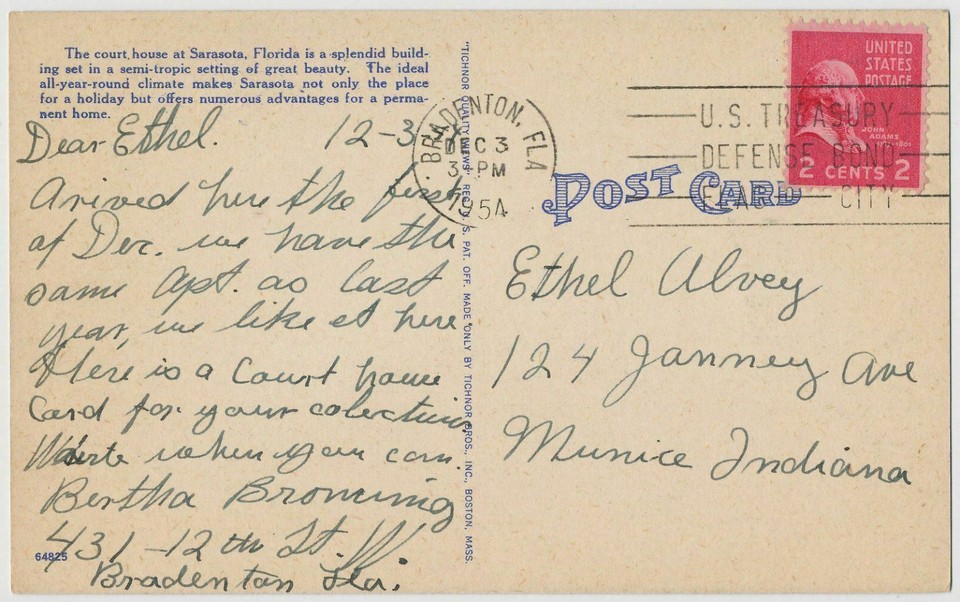 The court house at Sarasota, Florida is a splendid build-
ing set in a semi-tropic setting of great beauty. The ideal
all-year-round climate makes Sarasota not only the place
for a holiday but offers numerous advantages for a perma-
nent home.
Dear Ethel. 12-3
Arived here the first
of Dec. we have the
same Apt. as last
year, we like it here
Here is a Court house
Card for your colection
Write when you can.
Bertha Browning
431-12th St. W.
Bradenton Fla.
64825
"TICHNOR QUALITY VIEWS" REG. U. S. PAT. OFF. MADE ONLY BY TICHNOR BROS., INC., BOSTON, MASS.
BRADENTON, FLA
DEC 3
3 PM
1954
UNITED
STATES
POSTAGE
JOHN
ADAMS
2 CENTS 2
U.S. TREASURY
DEFENSE BOND
FLAG CITY
POST CARD
Ethel Alvey
124 Janney Ave
Munice Indiana